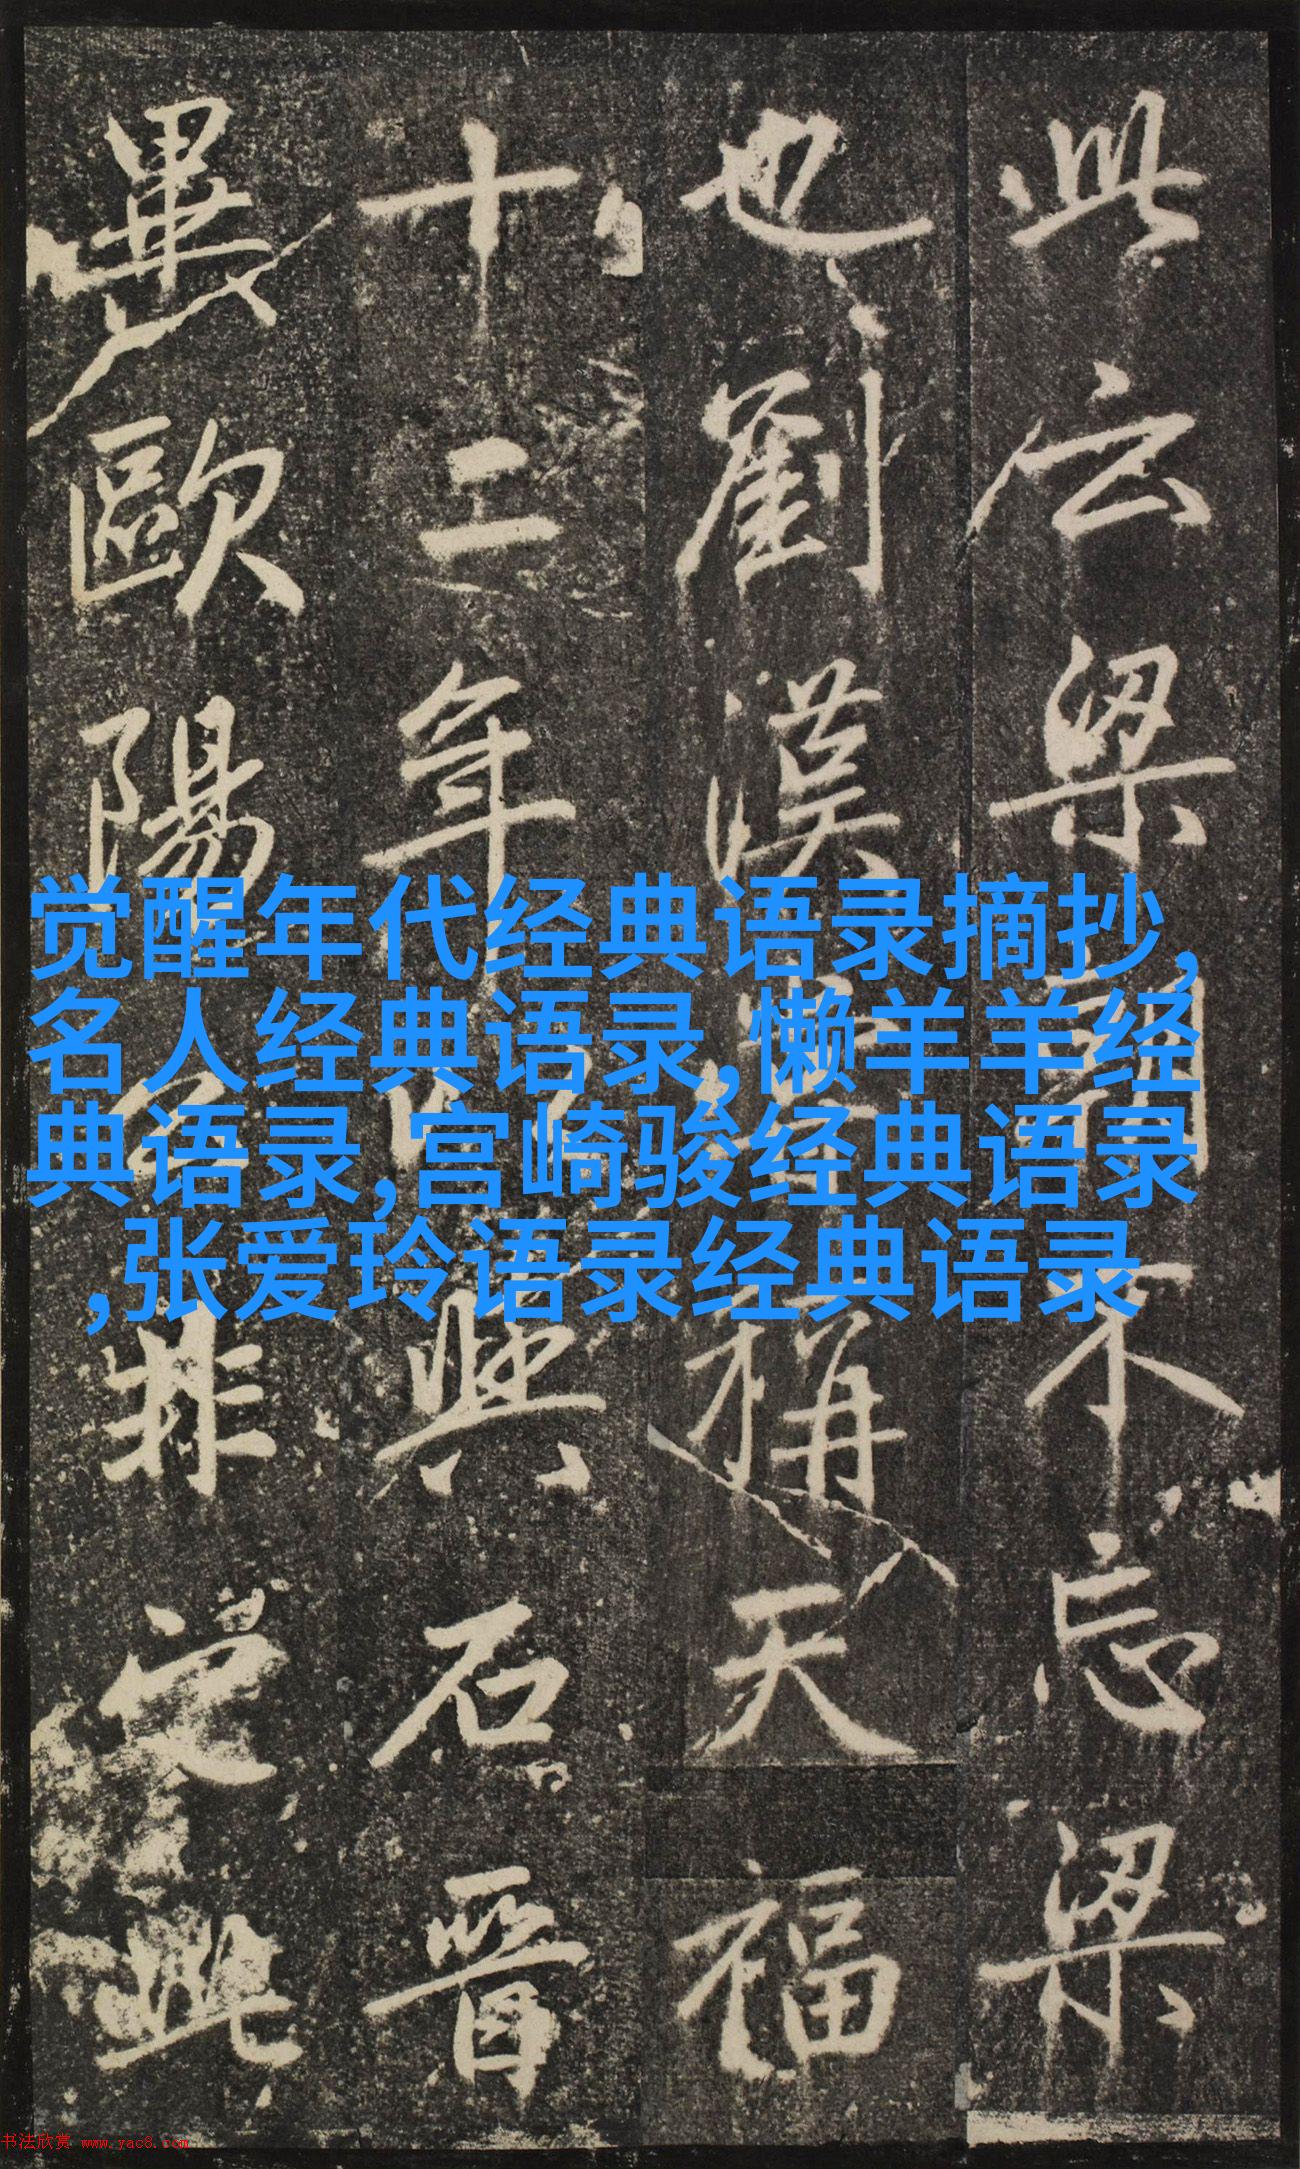 此云梁朝不忘梁
也劉漢稱天福
十二年與石晉
畢歐陽公非此
觉醒年代经典语录摘抄,
名人经典语录,懒羊羊经
典语录,宫崎骏经典语录
,张爱玲语录经典语录
书法欣赏 www.yac8.com